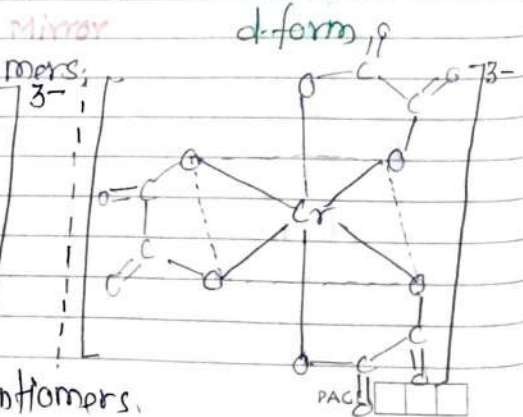 Mirror
d-form
mers;
3-
3-
O
C
O
C
O
O
O
O=C
Cr
C
O
O
O
C
O
O
C
O
ntiomers.
PAG